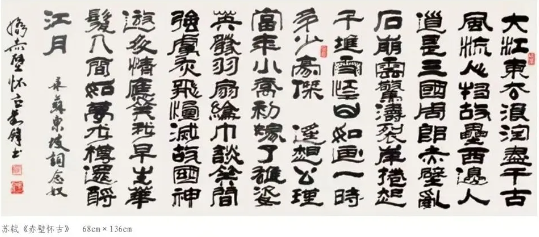 大江東去浪淘盡千古
風流人物故壘西邊人
道是三國周郎赤壁亂
石崩雲驚濤裂岸捲起
千堆雪江山如畫一時
多少豪傑 遙想公瑾
當年小喬初嫁了雄姿
英發羽扇綸巾談笑間
強虜灰飛煙滅故國神
遊多情應笑我早生華
髮人間如夢一樽還酹
江月
宋蘇東坡詞念奴
嬌赤壁懷古 書
《赤壁怀古》 68cm×136cm